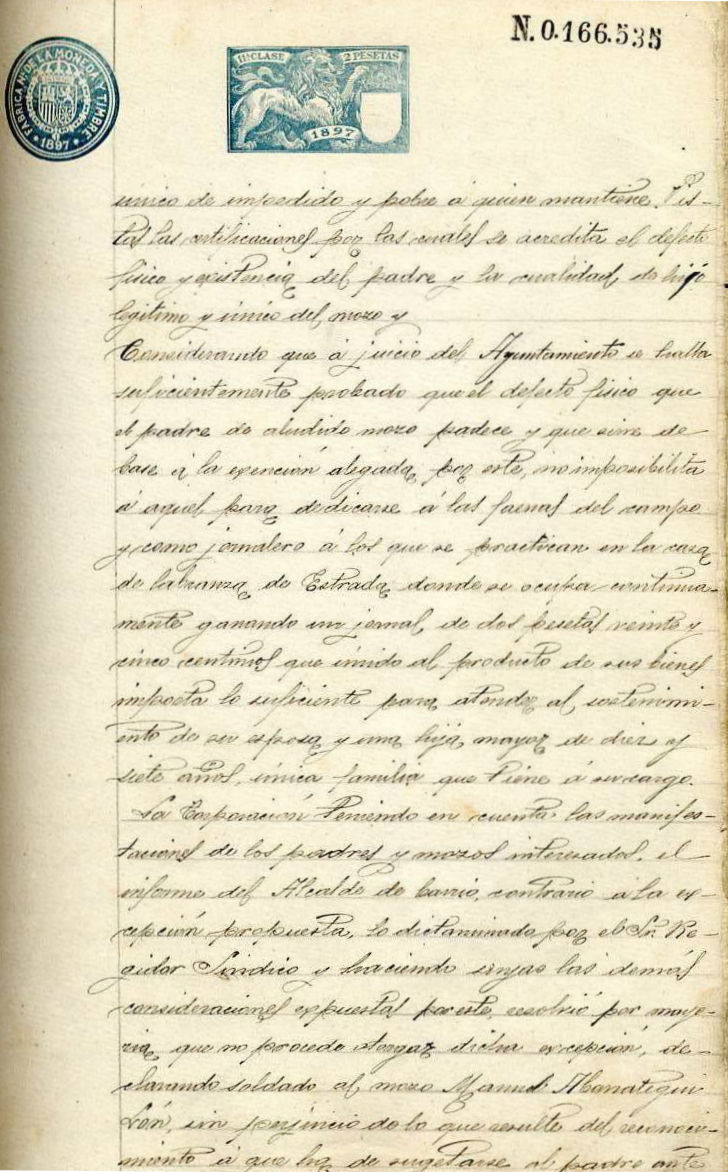 N. 0.166.535
FABRICA N. DE LA MONEDA Y TIMBRE
1897
11ª CLASE 2 PESETAS
1897
único de impedido y pobre á quien mantiene. Vis-
tas las certificaciones por las cuales se acredita el defecto
físico y existencia del padre y la cualidad de hijo
legítimo y único del mozo y
Considerando que á juicio del Ayuntamiento se halla
suficientemente probado que el defecto físico que
el padre de aludido mozo padece y que sirve de
base á la exención alegada por este, no imposibilita
á aquel para dedicarse á las faenas del campo
y como jornalero á los que se practican en la casa
de labranza de Estrada donde se ocupa continua-
mente ganando un jornal de dos pesetas veinte y
cinco centimos que unido al producto de sus bienes
importa lo suficiente para atender al sostenimi-
ento de su esposa y una hija mayor de diez y
siete años, única familia que tiene á su cargo.
La Corporación teniendo en cuenta las manifes-
taciones de los padres y mozos interesados, el
informe del Alcalde de barrio, contrario á la ex-
cepción propuesta, lo dictaminado por el Sr. Re-
gidor Sindico y haciendo suyas las demás
consideraciones expuestas por este, resolvió por mayo-
ria que no procede otorgar dicha excepción, de-
clarando soldado al mozo Manuel
sin perjuicio de lo que resulte del reconoci-
miento á que ha de sugetarse el padre ante